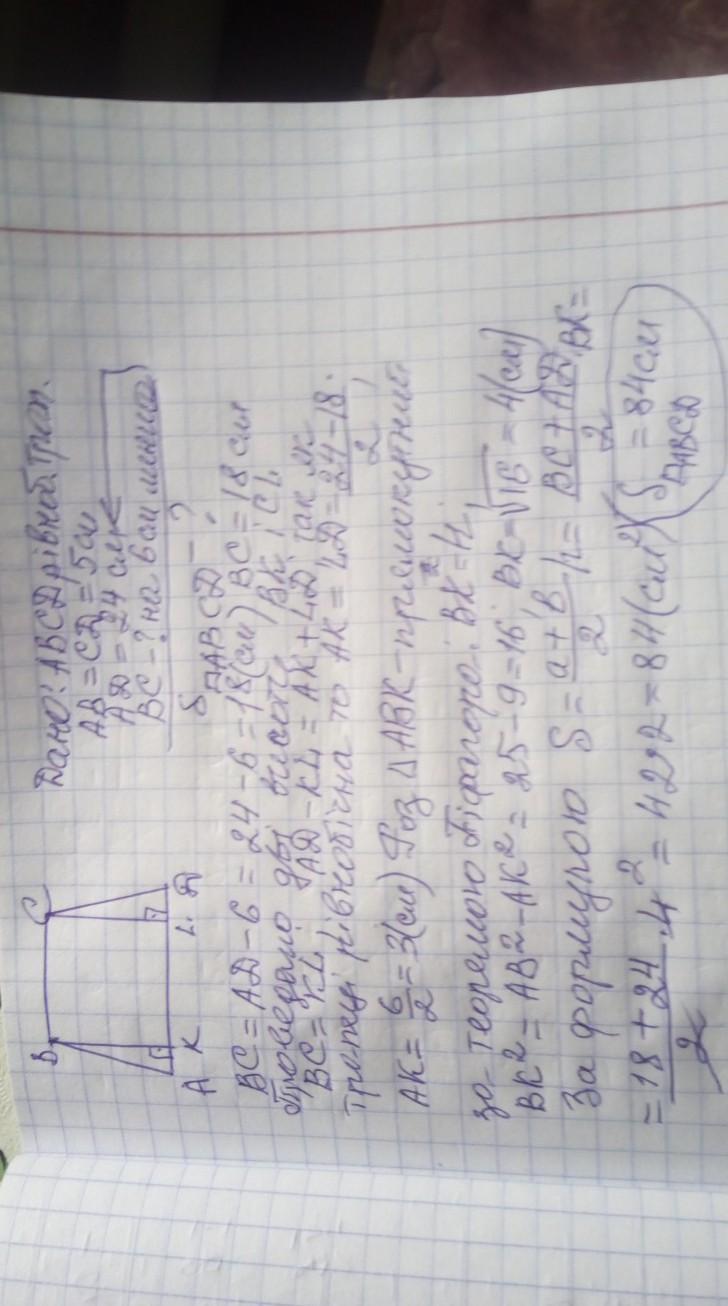 B C
A K L D
Дано: ABCD рівноб. трап.
AB = CD = 5см
AD = 24 см
BC - ? на 6 см менша
S ABCD - ?
BC = AD - 6 = 24 - 6 = 18(см) BC = 18 см
Проведемо дві висоти BK і CL
BC = KL AD - KL = AK + LD, так як
трапеція рівнобічна то AK = LD = 24 - 18 / 2,
AK = 6/2 = 3(см) Роз ΔABK - прямокутний
за теоремою Піфагора: BK = H,
BK² = AB² - AK² = 25 - 9 = 16 BK = √16 = 4(см)
За формулою S = a + b / 2 h = BC + AD / 2 · BK =
= 18 + 24 / 2 · 4 2 = 42·2 = 84(см²) S ABCD = 84см